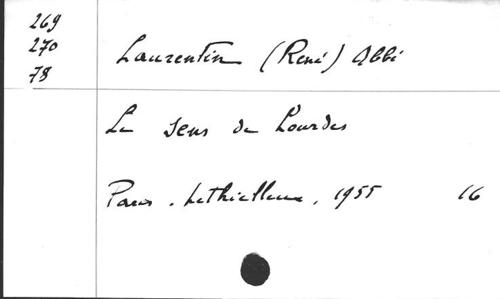 269
270
78
Laurentin (René) Abbé
Le sens de Lourdes
Paris. Lethielleux, 1955 16